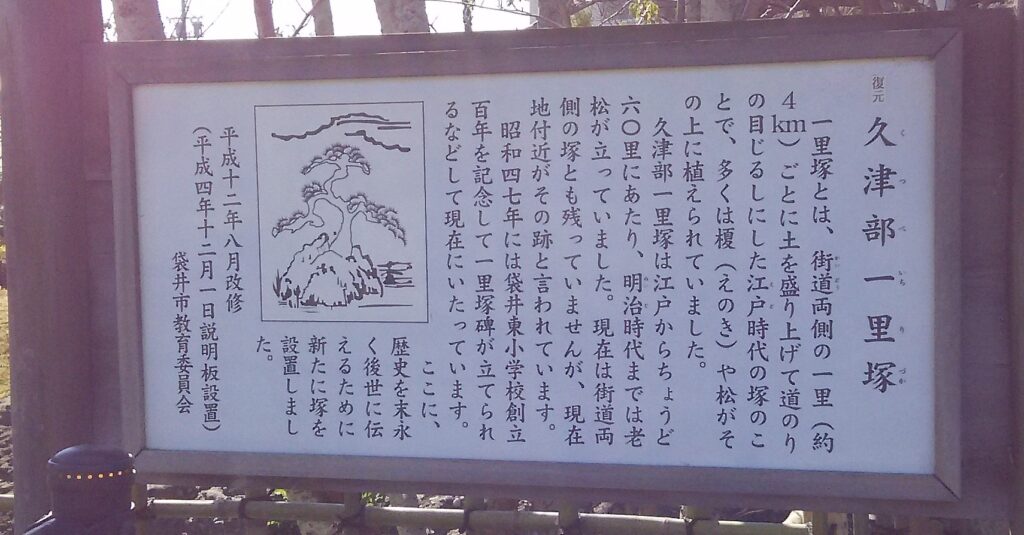 復元
久津部一里塚
くつべいちりづか
一里塚とは、街道両側の一里（約
4km）ごとに土を盛り上げて道のり
の目じるしにした江戸時代の塚のこ
とで、多くは榎（えのき）や松がそ
の上に植えられていました。
久津部一里塚は江戸からちょうど
六〇里にあたり、明治時代までは老
松が立っていました。現在は街道両
側の塚とも残っていませんが、現在
地付近がその跡と言われています。
昭和四七年には袋井東小学校創立
百年を記念して一里塚碑が立てられ
るなどして現在にいたっています。
ここに、
歴史を末永
く後世に伝
えるために
新たに塚を
設置しまし
た。
平成十二年八月改修
（平成四年十二月一日説明板設置）
袋井市教育委員会